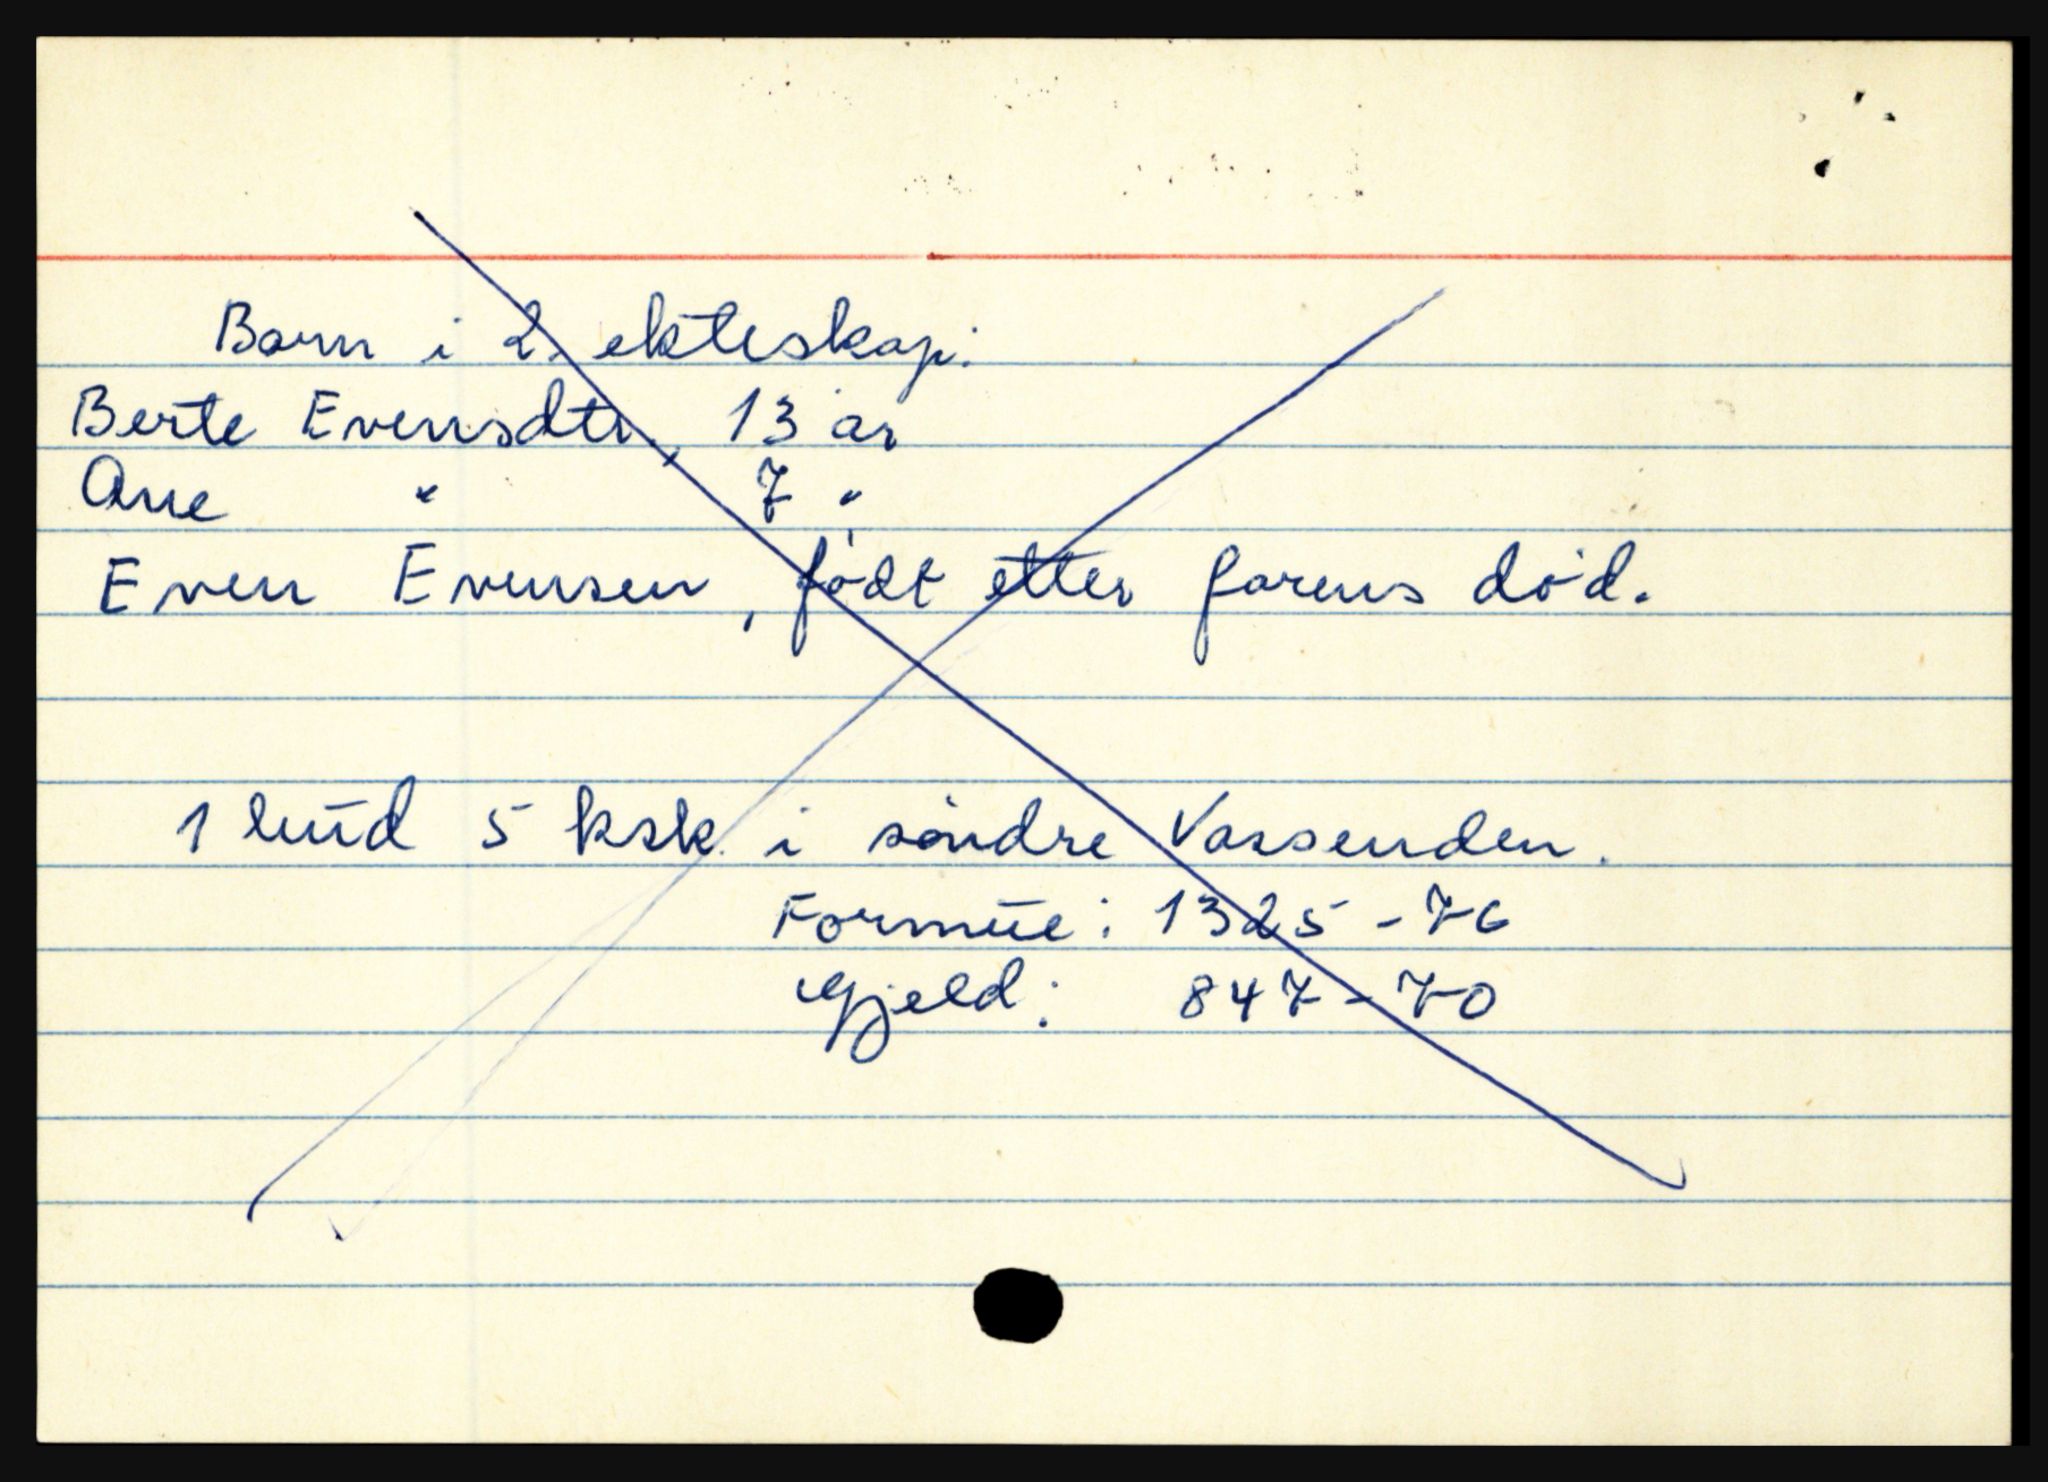 Barn i 2. ekteskap:
Berte Evensdtr., 13 år
Ane " 7 "
Even Evensen, født etter farens død.
1 hud 5 ksk. i søndre Vassenden.
Formue: 1325-76
Gjeld: 847-70